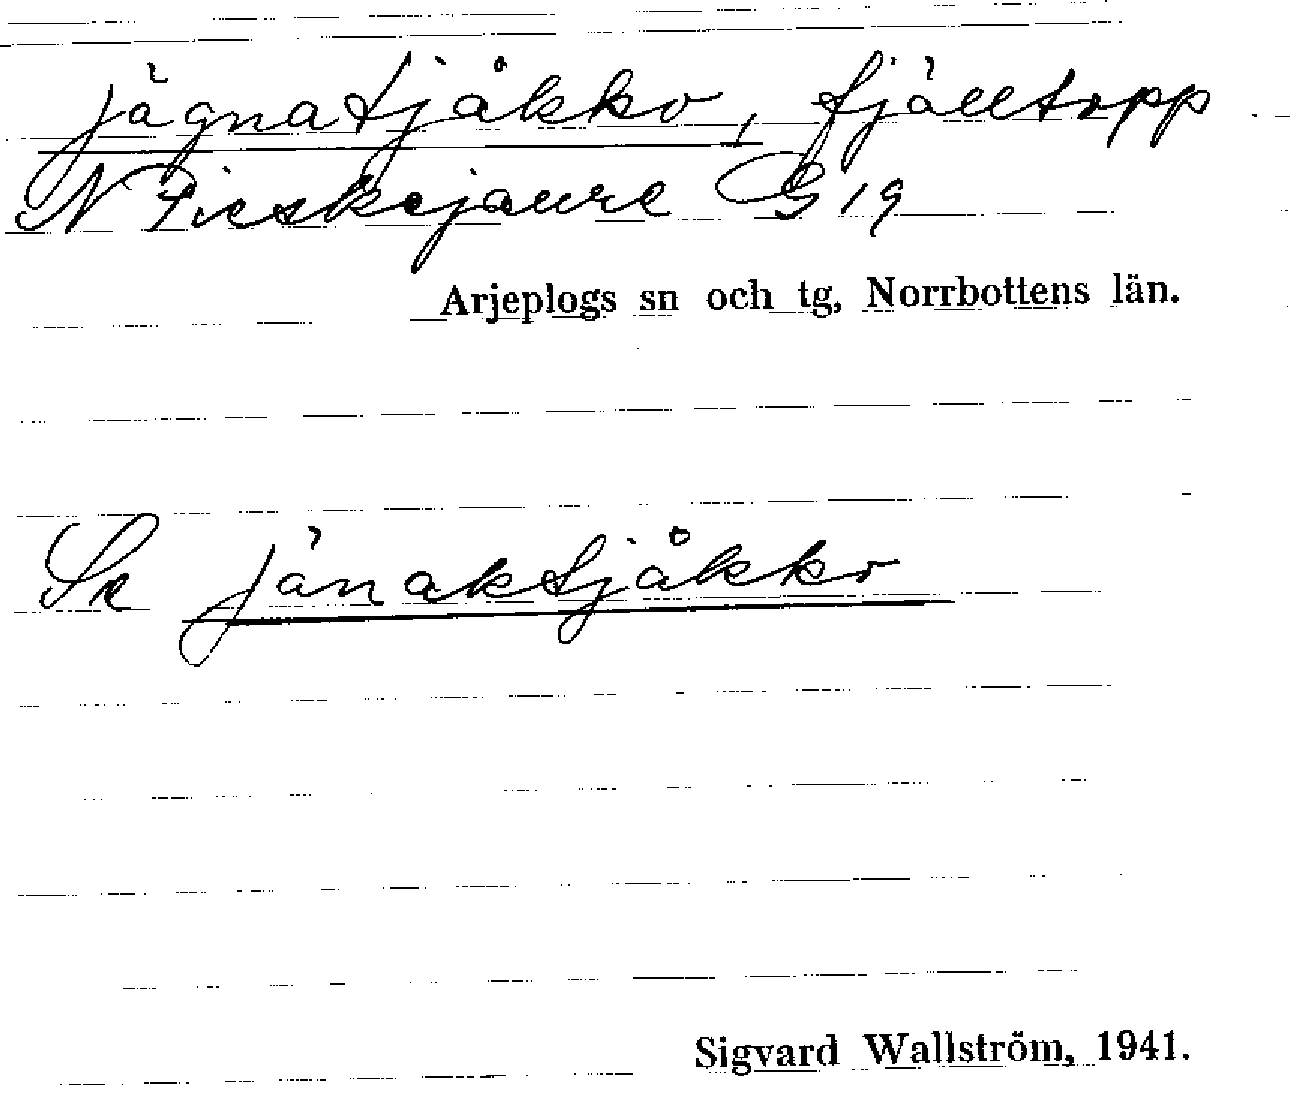 jägnatjåkko, fjälltopp
N Pieskejaure G 19
Arjeplogs sn och tg, Norrbottens län.
Se jänaktjåkko
Sigvard Wallström, 1941.